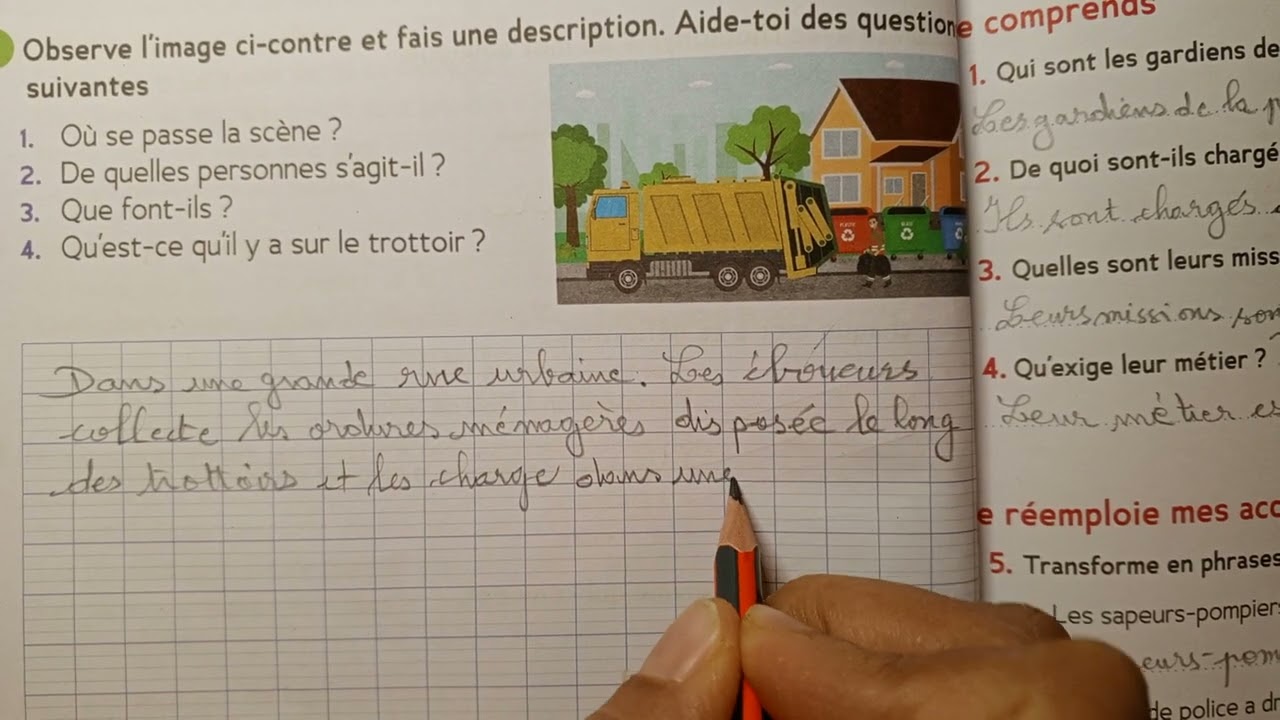 Observe l'image ci-contre et fais une description. Aide-toi des question
suivantes
1. Où se passe la scène ?
2. De quelles personnes s'agit-il ?
3. Que font-ils ?
4. Qu'est-ce qu'il y a sur le trottoir ?
Dans une grande rue urbaine. Les éboueurs
collecte les ordures ménagères disposée le long
des trottoirs et les charge dans une
e comprends
1. Qui sont les gardiens de
Les gardiens de la p
2. De quoi sont-ils chargé
Ils sont chargés
3. Quelles sont leurs miss
Leurs missions son
4. Qu'exige leur métier ?
Leur métier es
e réemploie mes acq
5. Transforme en phrases
Les sapeurs-pompier
eurs-pom
de police a dr